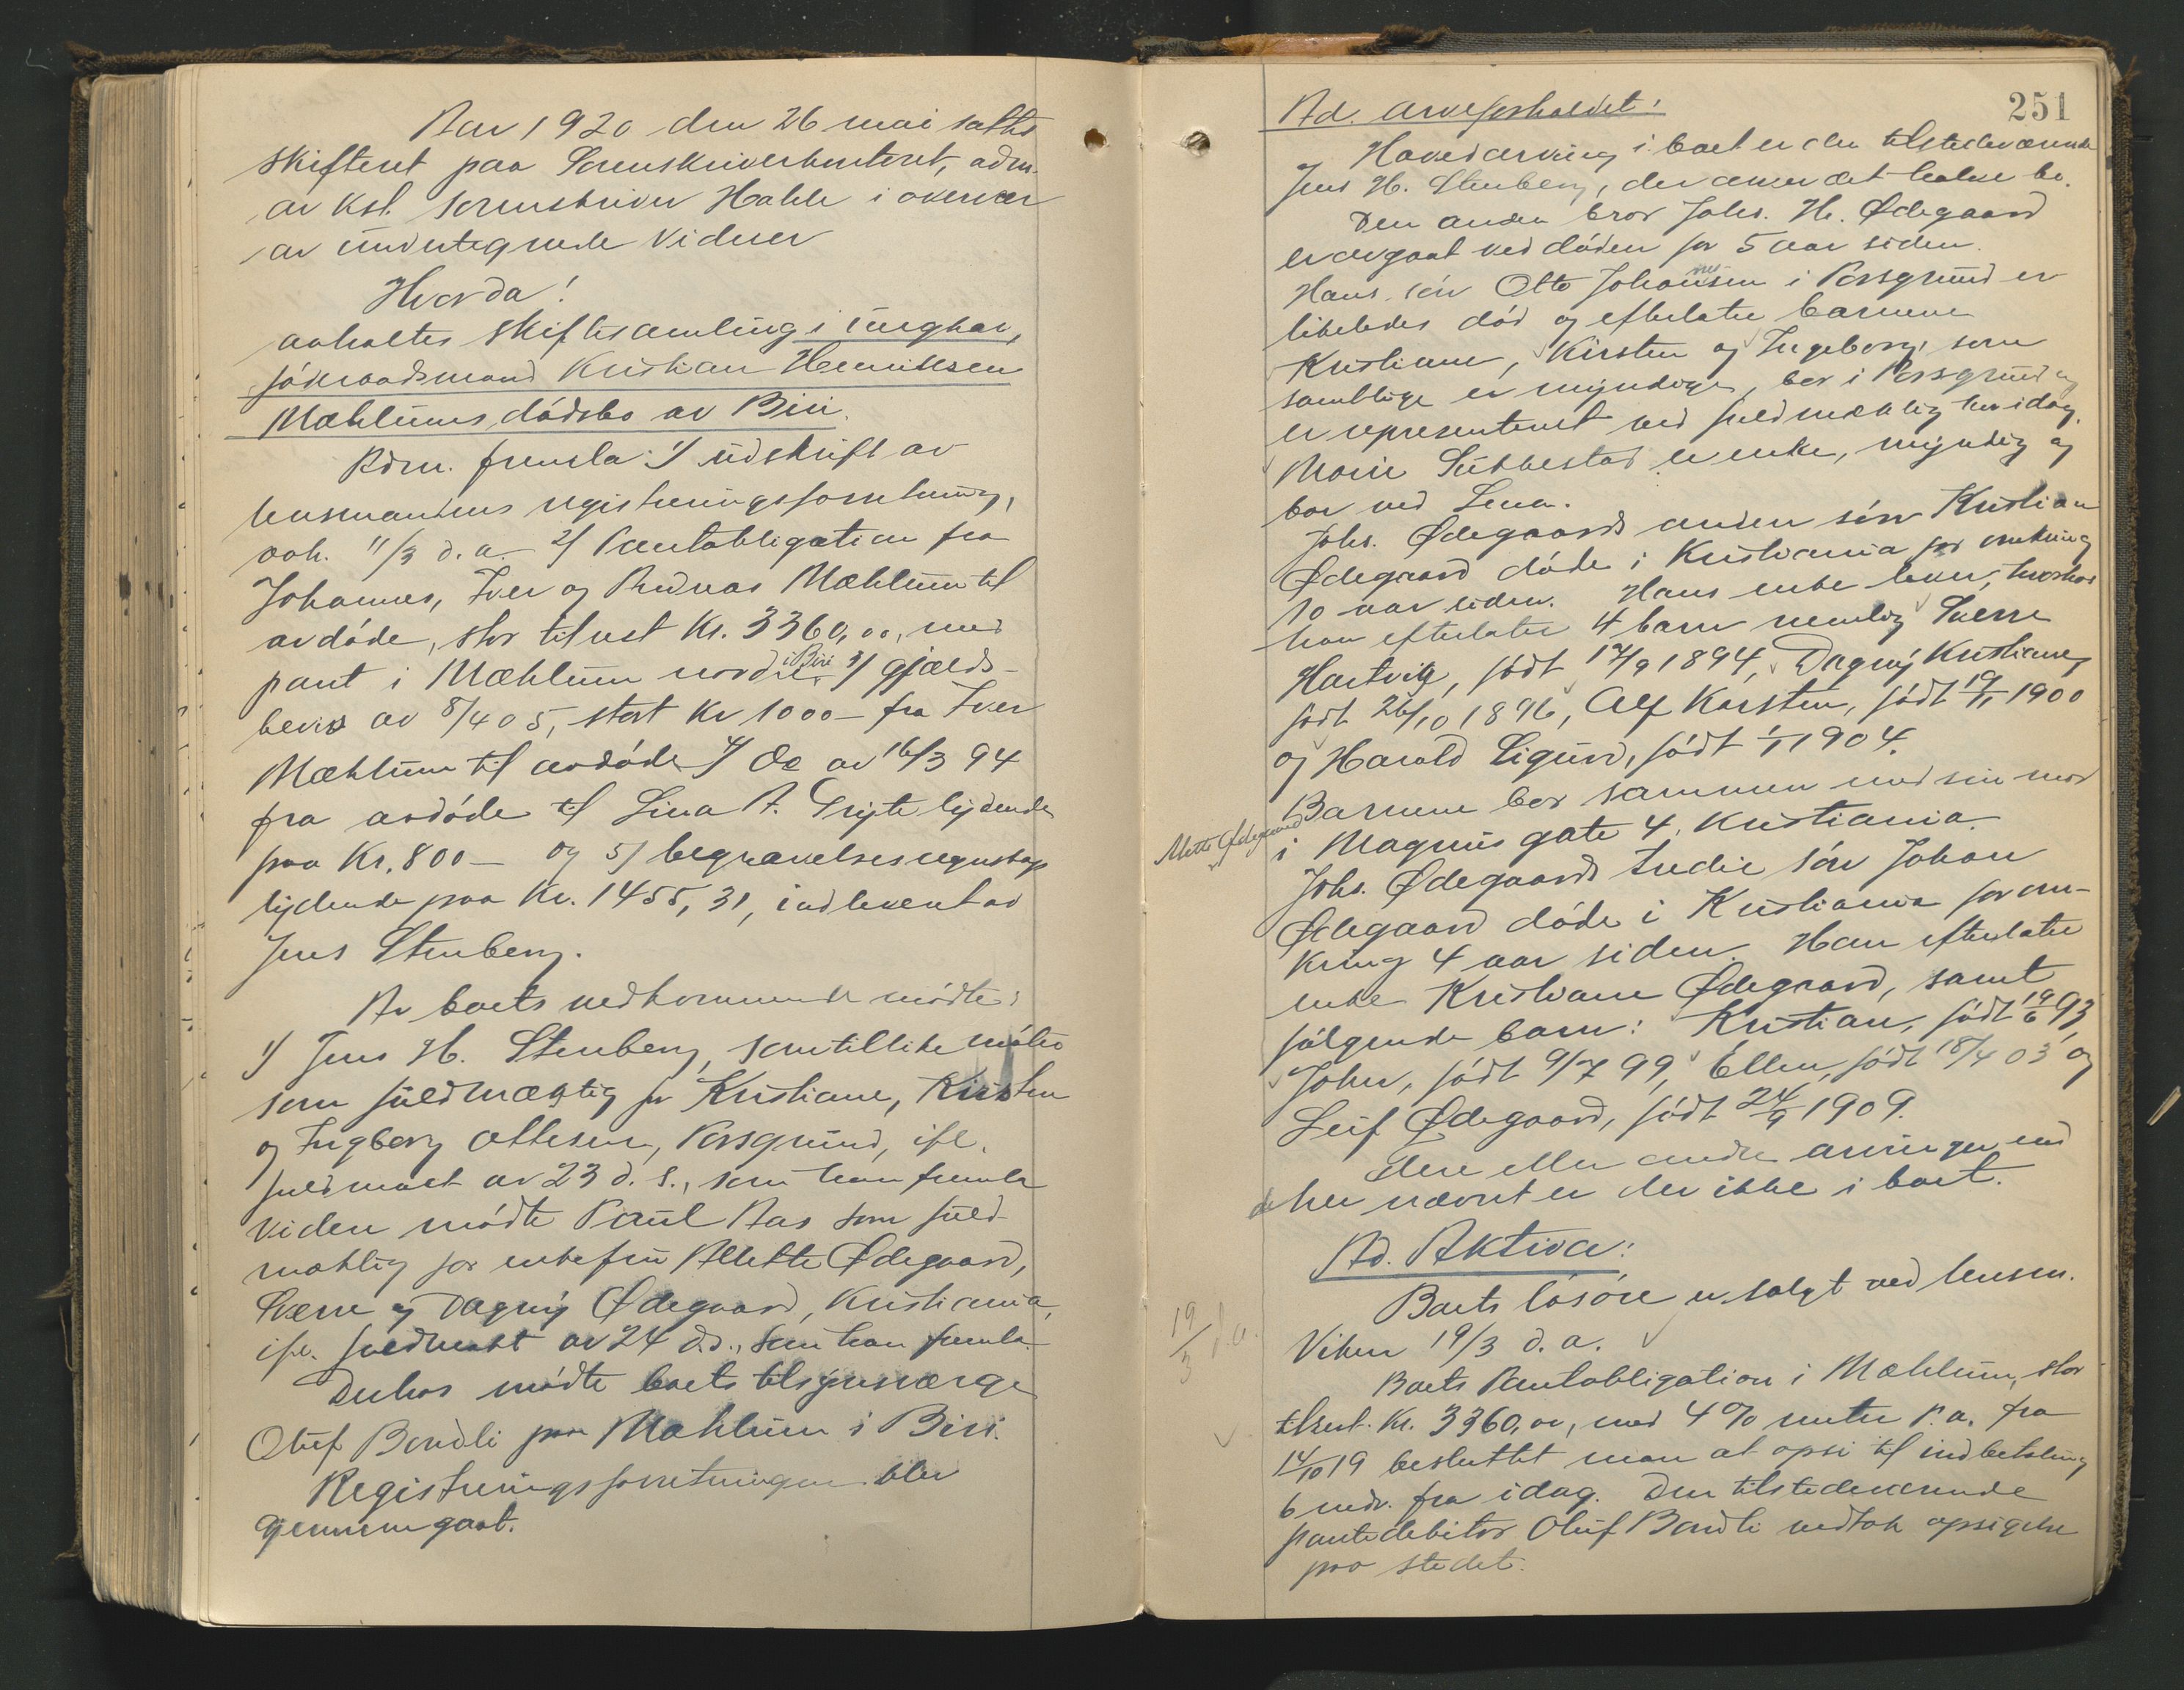 Aar 1920 den 26 mai sattes
skifteret paa Sorenskriverkontoret, adm.
av kst. sorenskriver Hakle i overvær
av undertegnede vidner
Hvorda!
avholtes skiftesamling i ungkar,
forh. raadsmand Kristian Henriksen
Mæhlums dødsbo av Biri.
Adm. fremla: 1/ udskrift av
lensmandens registreringsforretning,
avh. 11/3 d. a. 2/ Pantobligation fra
Johannes, Iver og Andreas Mæhlum til
avdøde, stor til rest Kr. 3360,00, med
pant i Mæhlum nordre i Biri 3/ gjælds-
bevis av 8/4 05, stort Kr 1000 - fra Iver
Mæhlum til avdøde 4/ Do av 16/3 94
fra avdøde til Lina A. Gryte lydende
paa Kr. 800 - og 5/ begravelsesregnskap
lydende paa Kr. 1455,31, indlevert av
Jens Stenberg.
Av boets vedkommende mødte:
1/ Jens H. Stenberg, som tillike møter
som fuldmægtig for Kristiane, Kirsten
og Ingeborg Ottesen, Porsgrund, ifl.
fuldmakt av 23 d. s., som han fremla
Viden mødte Paul Aas som fuld-
mæktig for enkefru Alette Ødegaard,
Sverre og Dagny Ødegaard, Kristiania,
ifl. fuldmakt av 24 d.s., som han fremla.
Derhos mødte boets tilsynsværge
Oluf Bondli paa Mæhlum i Biri.
Registreringsforretningen blev
gjennemgaat.
251
Ad. arveforholdet:
Hovedarving i boet er den tilstedeværende
Jens H. Stenberg, der arver det halve bo.
Den anden bror Johs. H. Ødegaard
er avgaat ved døden for 5 aar siden.
Hans søn Otto Johannesen i Porsgrund er
likeledes død og efterlater barnene
Kristiane, Kirsten og Ingeborg, som
samtlige er myndige, bor i Porsgrund og
er representeret ved fuldmæktig her idag.
Marie Sukkestad er enke, myndig og
bor ved Lena.
Johs. Ødegaards anden søn Kristian
Ødegaard døde i Kristiania for omkring
10 aar siden. Hans enke lever, hvorhos
han efterlater 4 barn nemlig Sverre
Hartvig, født 17/9 1894, Dagny Kristiane,
født 26/10 1896, Alf Karsten, født 19/11 1900
og Harald Sigurd, født 1/11 1904.
Barnene bor sammen med sin mor
Alette Ødegaard
i Magnus gate 4, Kristiania.
Johs. Ødegaards tredie søn Johan
Ødegaard døde i Kristiania for om-
kring 4 aar siden. Han efterlater
enke Kristiane Ødegaard, samt
følgende barn: Kristian, født 19/6 93,
John, født 9/7 99, Ellen, født 18/4 03 og
Leif Ødegaard, født 24/9 1909.
Flere eller andre arvinger end
de her nævnt er der ikke i boet.
Ad. Aktiva:
Boets løsøre er solgt ved lensm.
19/3 d.a.
Viken 19/3 d. a.
Boets Pantobligation i Mæhlum, stor
til rest. Kr. 3360,00, med 4 % renter p. a. fra
14/10 19 besluttet man at opsi til indbetaling
6 mdr. fra idag. Den tilstedeværende
pantedebitor Oluf Bondli vedtok opsigelse
paa stedet.